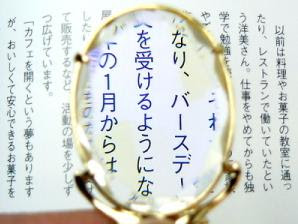 以前は料理やお菓子の教室に通っ
たり、レストランで働いていたとい
う洋美さん。仕事をやめてからも独
学で勉強を
なり、バースデー
を受けるようにな
の1月からは
て販売するなど 活動の場を少しず
つ広げています。
「カフェを開くという夢もあります
が、おいしくて安心できるお菓子を